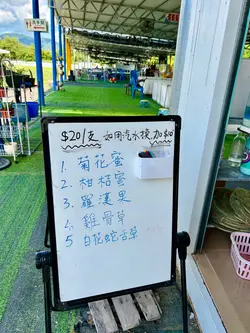 $20/支 如用汽水換加$10
1. 菊花蜜
2. 柑桔蜜
3. 羅漢果
4. 雞骨草
5 白花蛇舌草